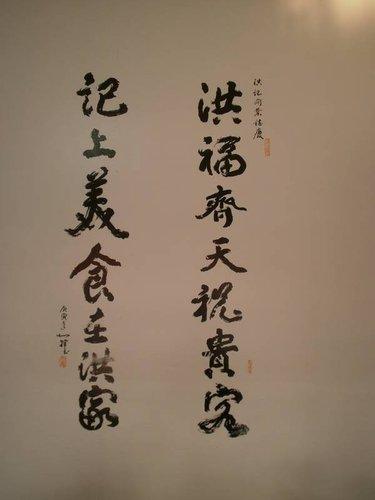 洪記開業誌慶
洪福齊天祝貴客
記上美食在洪家
庚寅年